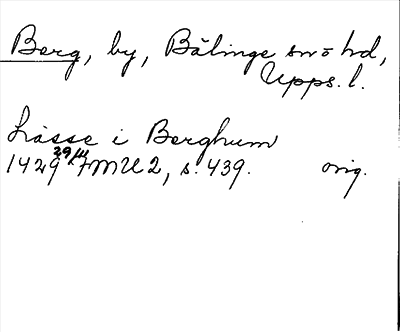 Berg, by, Bälinge sn o hd,
Upps. l.
Lasse i Berghum
1429 29/11 FMU 2, s. 439. orig.